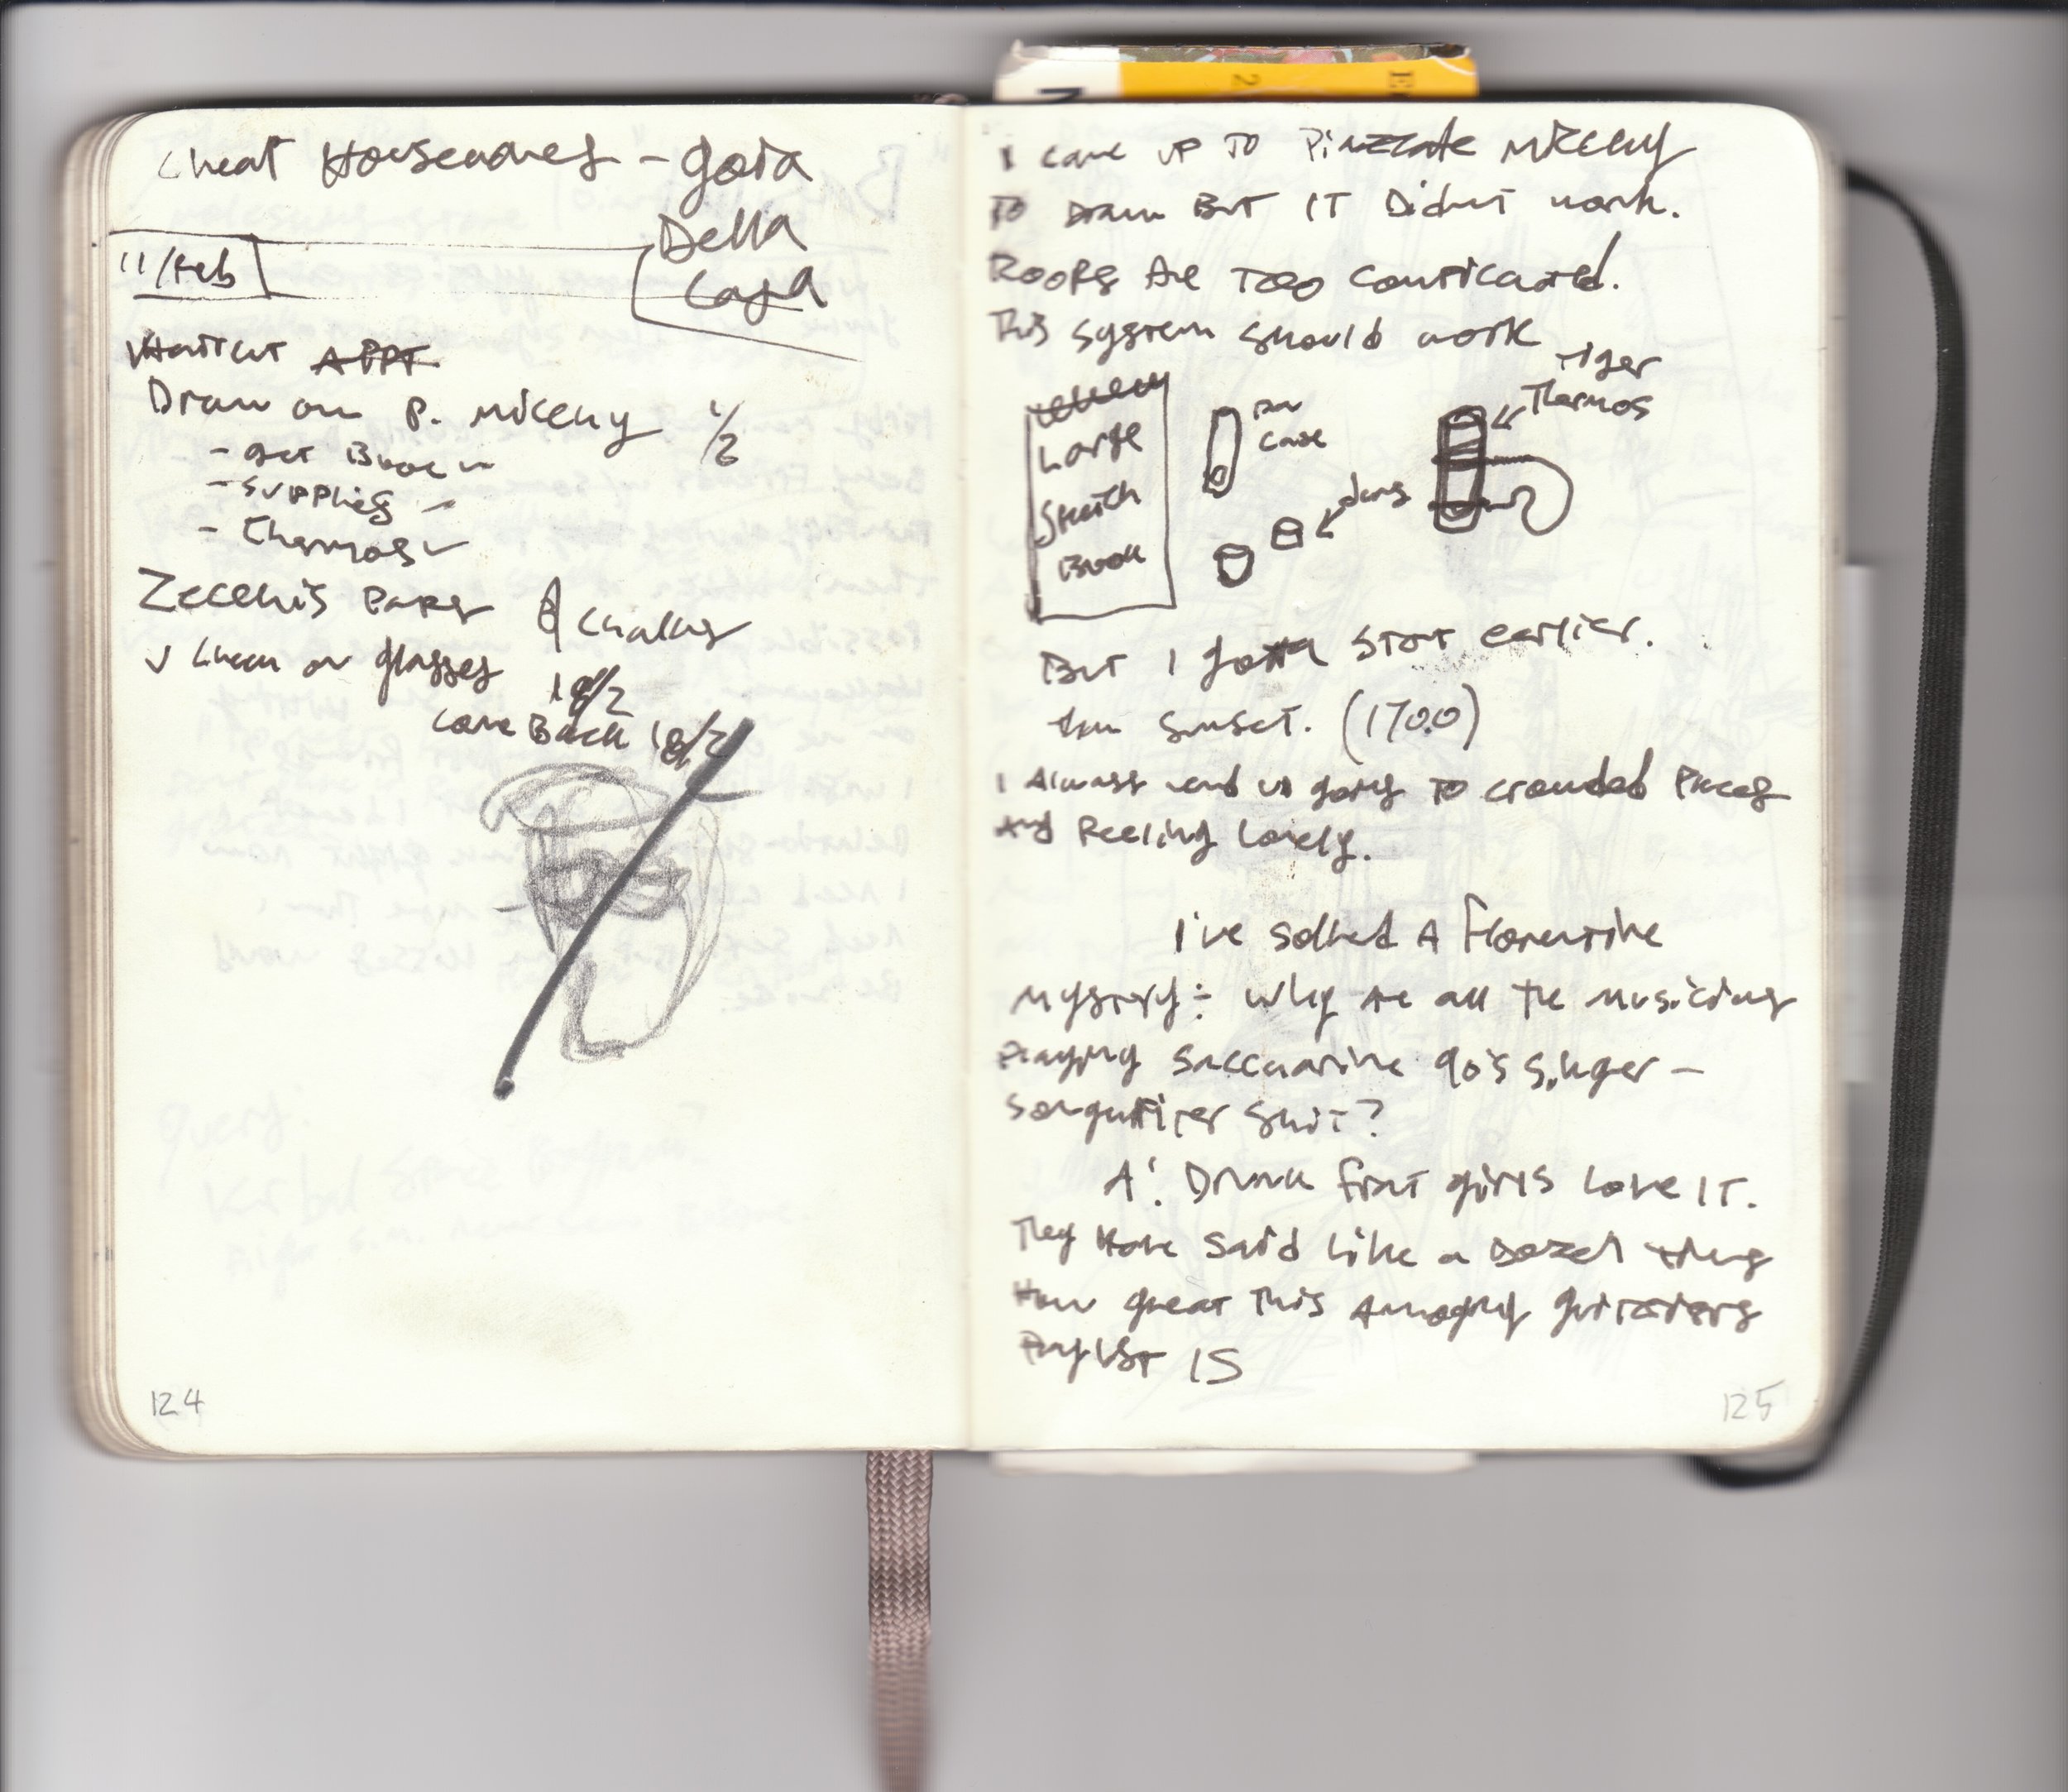 Cheat Housewares - Goia
Della
Casa
11/Feb
Haircut APPT
Draw on P. Mikey 1/2
- get Book
- supplies
- Thermos
Zecchis Paper & chalks
check on glasses
18/2
come Back 18/2
124
I came up to Piazzale Mikey
to Draw But IT Didnt work.
Roofs Are Too complicated.
This system should work
Tiger
Thermos
Large
Sketch
Book
Pen
Case
But I gotta start earlier.
than sunset. (1700)
I Always wend up going to crowded Places
And Feeling Lonely.
I've solved A Florentine
mystery: why Are all the musicians
Playing Saccharine 90's singer-
songwriter shit?
A: Drunk frat girls Love IT.
They Have said Like a Dozen times
How great This Annoying guitarists
Playlist IS
125